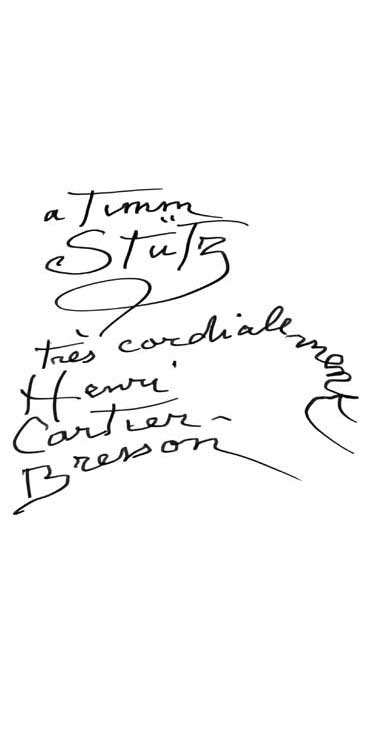 a Timm
Stütz
très cordialement
Henri
Cartier-
Bresson